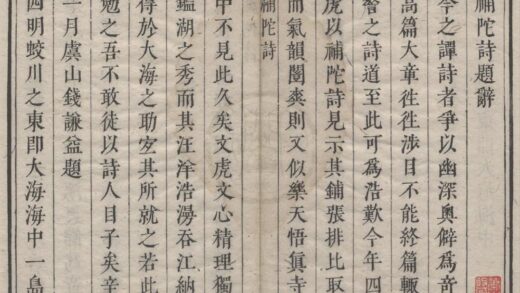 補陀詩題辭
今之譚詩者爭以幽深奧僻爲
高篇大章徃徃涉目不能終篇輒
之詩道至此可爲浩歎今年四
虎以補陀詩見示其鋪張排比取
而氣韻闇爽則又似樂天悟眞寺
補陀詩
中不見此久矣文虎文心精理獨
鑑湖之秀而其汪洋浩湯吞江納
得於大海之助宐其所就之若此
勉之吾不敢徒以詩人目子矣辛
一月虞山錢謙益題
四明蛟川之東卽大海海中一島